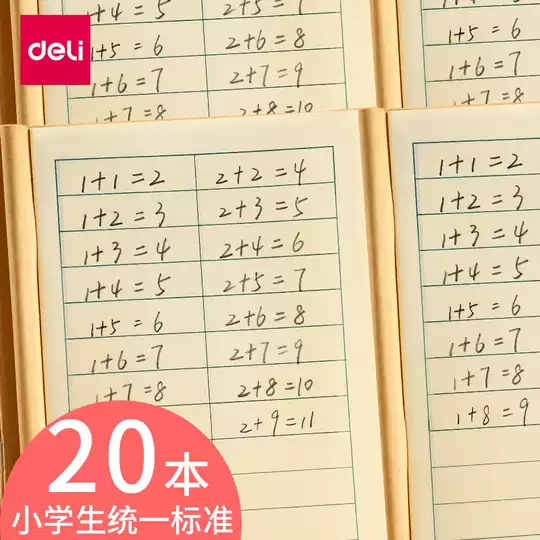 deli
1+4=5 2+5=7
1+5=6 2+6=8
1+6=7 2+7=9
1+7=8 2+8=10
1+5=6
1+6=7
1+7=8
1+1=2 2+2=4
1+2=3 2+3=5
1+3=4 2+4=6
1+4=5 2+5=7
1+5=6 2+6=8
1+6=7 2+7=9
1+7=8 2+8=10
2+9=11
1+1=2
1+2=3
1+3=4
1+4=5
1+5=6
1+6=7
1+7=8
1+8=9
20本
小学生统一标准